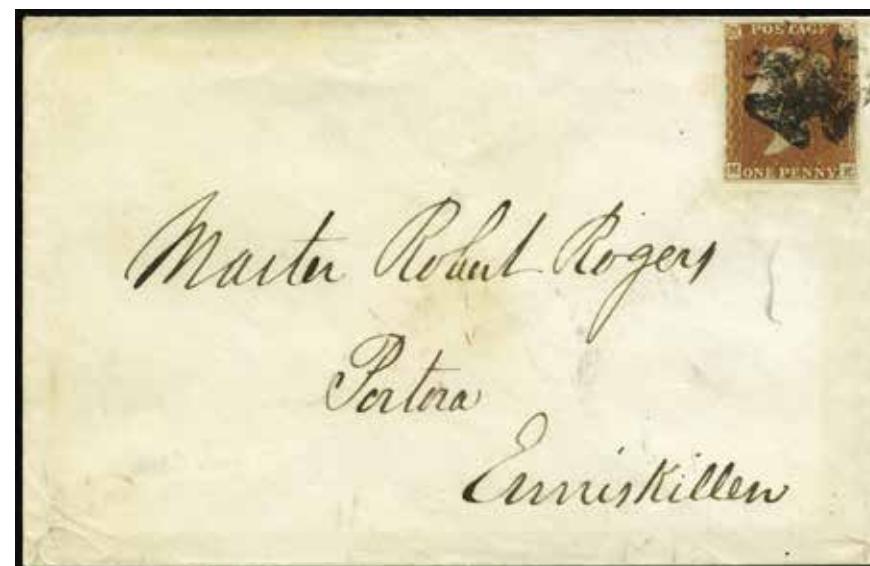 POSTAGE
ONE PENNY
Master Robert Rogers
Portora
Enniskillen